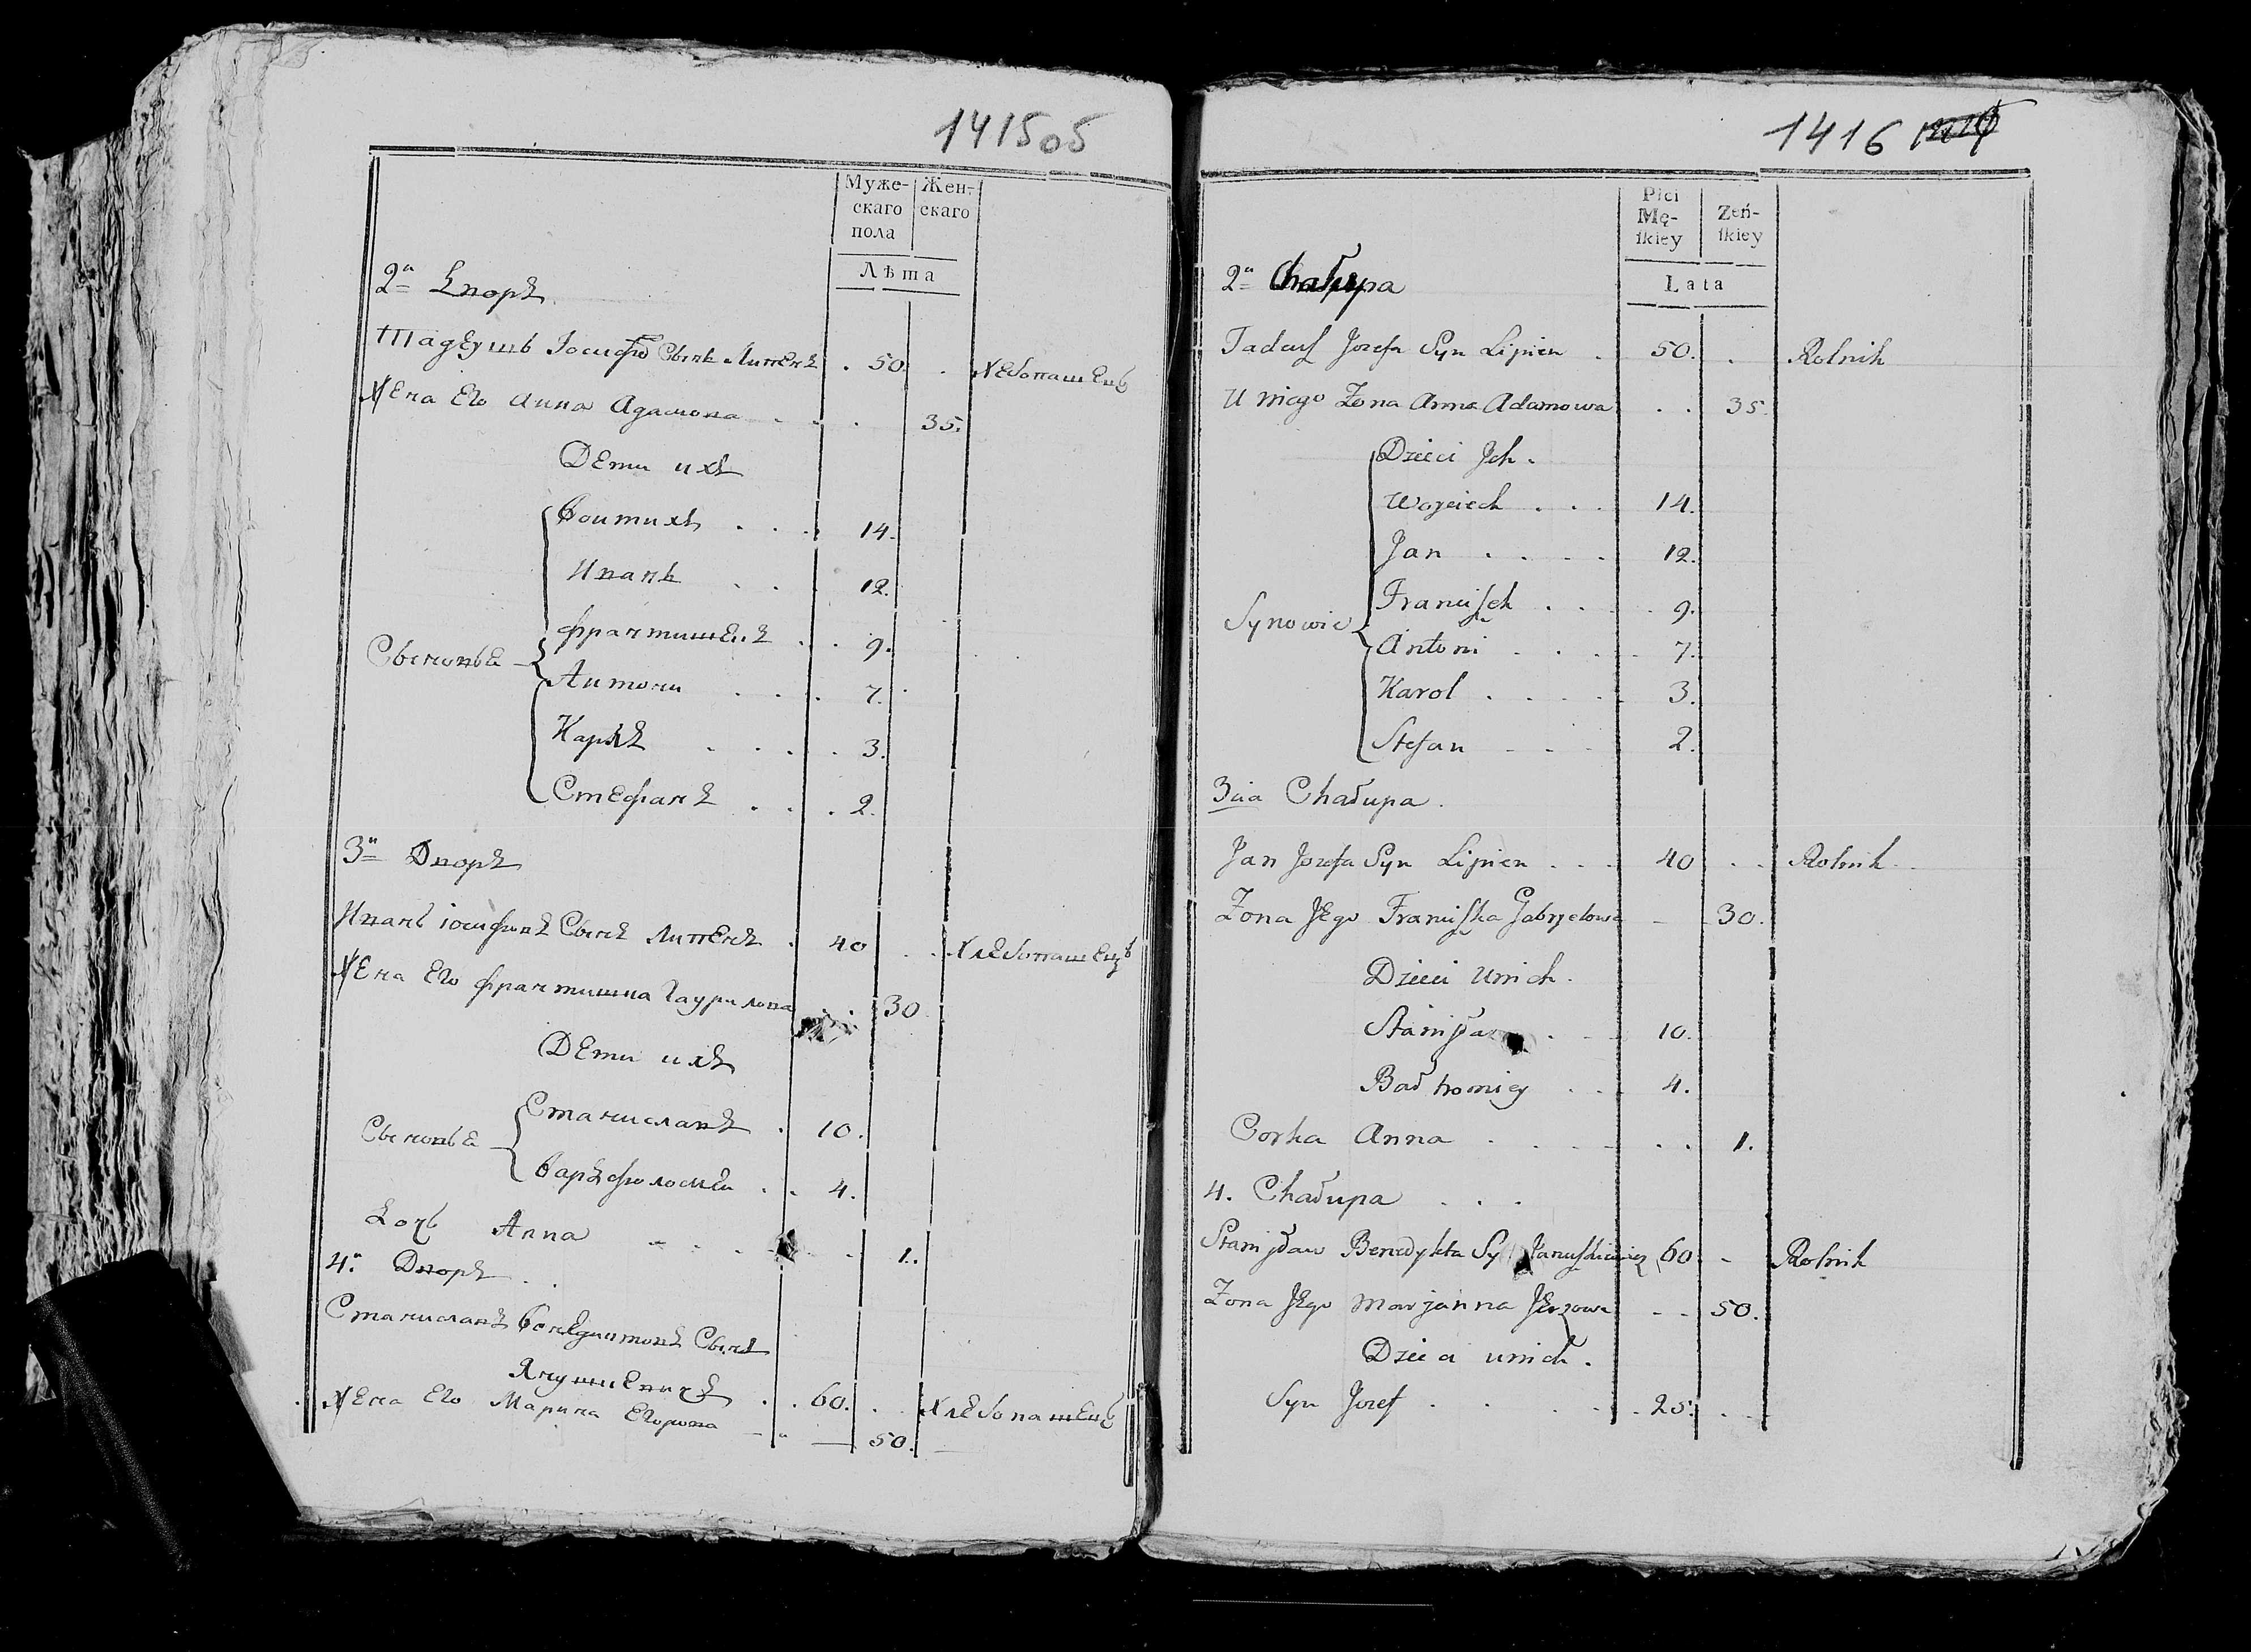 141505
Муже-
скаго
пола
Жен-
скаго
Лѣта
2й Дворъ
Тадеушъ Іосифа Сынъ Липенъ . 50 . Хлебопашецъ
Жена Его Анна Адамова . . . 35.
Дети ихъ
Сыновья
Воитихъ . . . 14.
Иванъ . . . 12.
Францишекъ . . 9.
Антони . . . 7.
Карлъ . . . . 3.
Стефанъ . . . 2.
3й Дворъ
Иванъ іосифовъ Сынъ Липенъ . 40 . . Хлебопашецъ
Жена Его францишка Гаврилова . . 30
Дети ихъ
Сыновья
Станиславъ . 10.
Варфоломеи . . 4.
Дочь Анна . . . . 1.
4й Дворъ . .
Станиславъ Бенедиктовъ Сынъ
Янушкевичъ . . 60. . . Хлебопашецъ
Жена Его Марина Егорова — 50.
1416
Płci
Mę-
ſkiey
Zeń-
ſkiey
Lata
2a Chałupa
Tadeuſz Jozefa Syn Lipien . 50. . Rolnik
U niego Zona Anna Adamowa . . 35.
Dzieci Jch.
Synowie
Woyciech . . . 14.
Jan . . . . 12.
Franciſzek . . . 9.
Antoni . . . . 7.
Karol . . . . 3.
Stefan . . . 2.
3cia Chałupa.
Jan Jozefa Syn Lipien . . . 40 . . Rolnik
Zona Jego Franciſzka Gabryelowa — 30.
Dzieci unich.
Staniſław . . . 10.
Bałtromiey . . . 4.
Corka Anna . . . . . . 1.
4. Chałupa . . .
Staniſław Benedykta Syn Januſzkiewicz 60 - Rolnik
Zona Jego Marjanna Jerzowa - - 50.
Dzieci unich.
Syn Jozef . . . . 25. . .